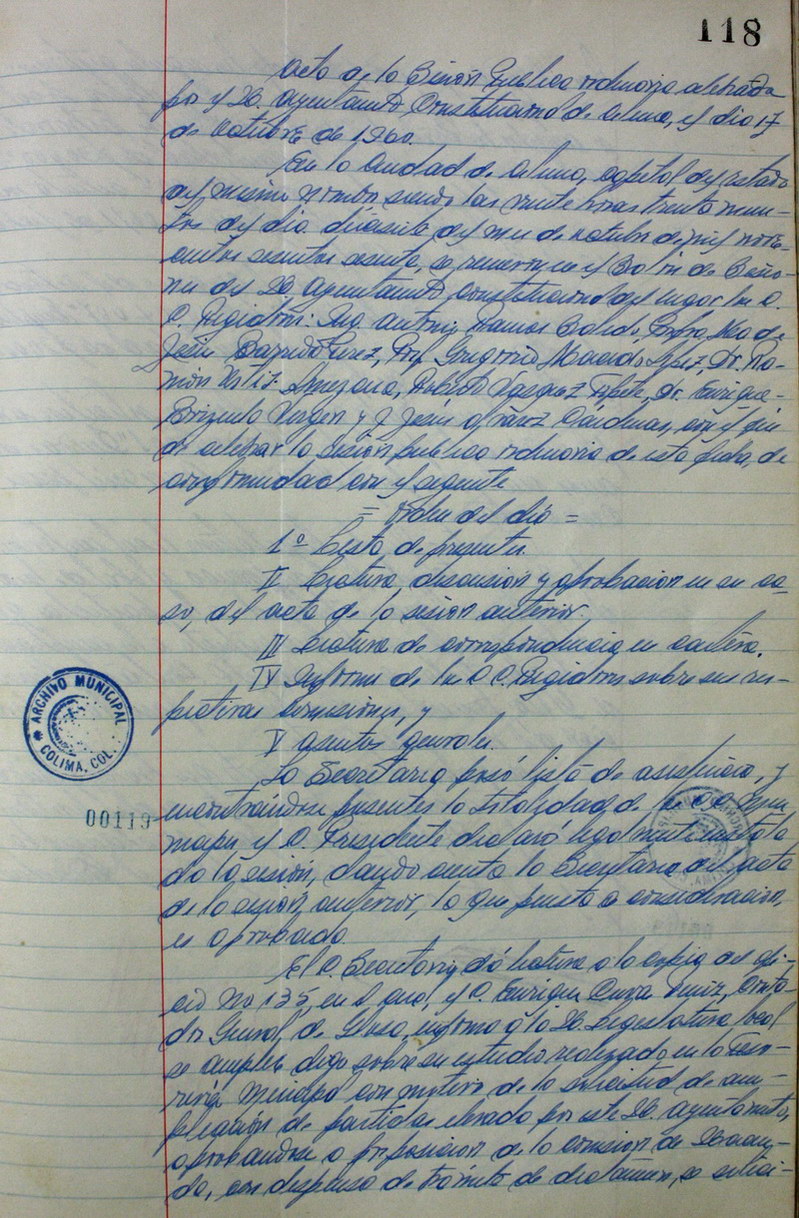 118
Acta de la Sesión Pública ordinaria celebrada
por el H. Ayuntamiento Constitucional de Colima, el día 17
de Octubre de 1960.
En la Ciudad de Colima, capital del Estado
del mismo nombre siendo las veinte horas treinta minu-
tos del día diecisiete del mes de octubre de mil nove-
cientos sesenta, se reunieron en el Salón de Sesio-
nes del H. Ayuntamiento Constitucional del lugar los C.
C. Regidores: Ing. Antonio Ramos Salido, Ma. de
Jesús Pérez, Prof. Gregorio Macedo López, Dr. Ra-
món Ortiz Amezcua, Roberto Vázquez Tapete, Dr. Enrique
Brizuela Virgen y J. Jesús Cárdenas, con el fin
de celebrar la sesión pública ordinaria de esta fecha, de
conformidad con el siguiente
= Orden del día =
1º Lista de presentes.
II Lectura, discusión y aprobación en su ca-
so, del acta de la sesión anterior.
III Lectura de correspondencia en cartera.
IV Informe de los C.C. Regidores sobre sus res-
pectivas comisiones, y
V asuntos generales.
La Secretaria pasó lista de asistencia, y
encontrándose presentes la totalidad de los C.C. mu-
nícipes el C. Presidente declaró legalmente instala-
da la sesión, dando cuenta la Secretaria del acta
de la sesión anterior, la que puesta a consideración,
es aprobada.
El C. Secretario dió lectura a la copia del ofi-
cio No 135, en el que, el C. Enrique Ruiz, Conta-
dor General de Glosa, informa a la H. Legislatura local
se digo sobre su estudio realizado en la Teso-
rería Municipal con motivo de la solicitud de am-
pliación de partidas elevada por este H. Ayuntamiento,
aprobándose a proposición de la comisión de Hacien-
da, con dispensa de trámite de dictamen, se solici-
ARCHIVO MUNICIPAL
COLIMA, COL.
00119